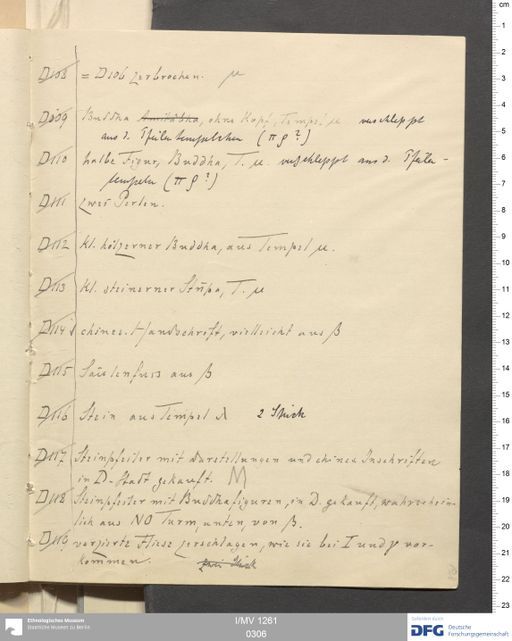 D108 = D106 zerbrochen. μ
D109 Buddha Amitâbha, ohne Kopf, Tempel μ verschleppt
aus d. Pfeilertempelchen (π ϱ ?)
D110 halbe Figur, Buddha, T. μ verschleppt aus d. Pfeiler-
tempeln (π ϱ ?)
D111 zwei Perlen.
D112 kl. hölzerner Buddha, aus Tempel μ.
D113 kl. steinerner Stūpa, T. μ
D114 chines. Handschrift, vielleicht aus β
D115 Säulenfuss aus β
D116 Stein aus Tempel λ 2 Stück
D117 Steinpfeiler mit Darstellungen und chines. Inschriften
in D.-Stadt gekauft. M
D118 Steinpfeiler mit Buddhafiguren, in D. gekauft, wahrschein-
lich aus NO Turm, unten, von β.
D119 verzierte Fliese zerschlagen, wie sie bei I und γ vor-
kommen. zwei Stück
cm
1
2
3
4
5
6
7
8
9
10
11
12
13
14
15
16
17
18
19
20
21
22
23
Ethnologisches Museum
Staatliche Museen zu Berlin
I/MV 1261
0306
Gefördert durch
DFG Deutsche
Forschungsgemeinschaft